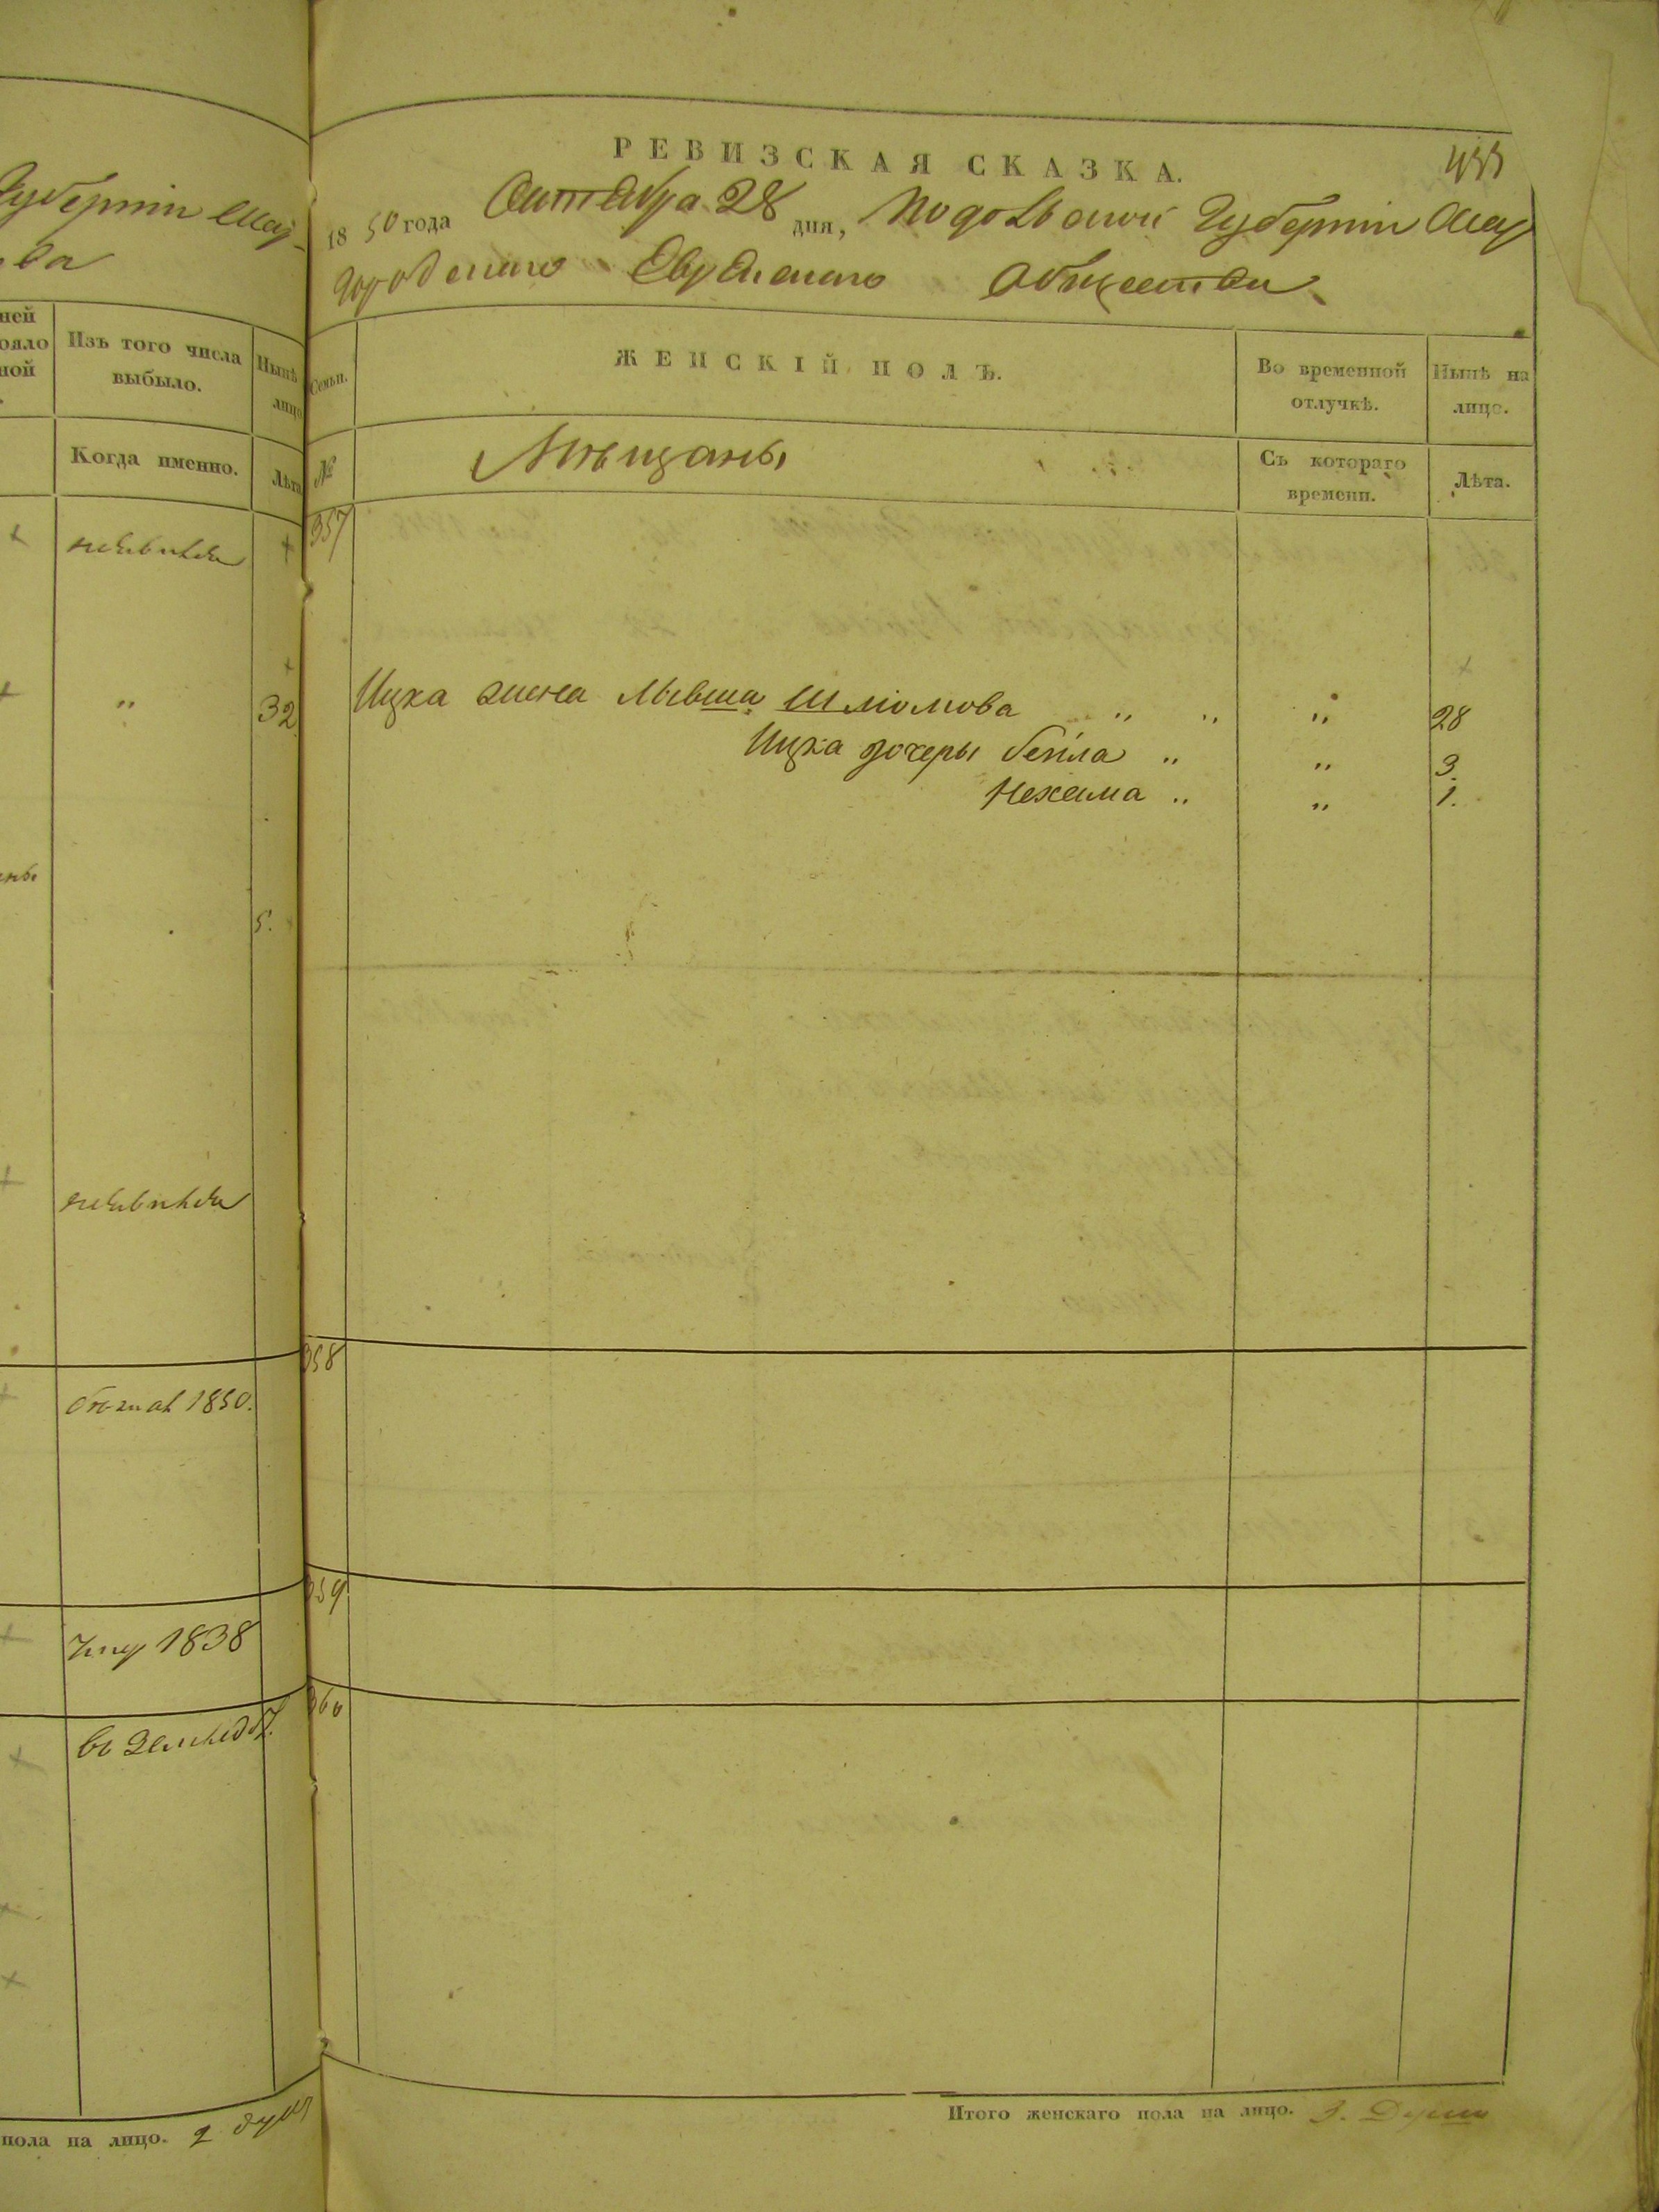 губерніи Шар-
ва
ней
ояло
ной
Изъ того числа
выбыло.
Нынѣ
лицо
Когда именно.
Лѣта
неявился
"
32
5.
неявился
1850.
1838
въ
пола на лицо. 2 души
РЕВИЗСКАЯ СКАЗКА.
1850 года Сентября 28 дня, Подольской Губерніи Шар
городскаго Еврейскаго Общества
Семьи.
ЖЕНСКІЙ ПОЛЪ.
Во временной
отлучкѣ.
Нынѣ на
лицо.
№
Мѣщаны
Съ котораго
времени.
Лѣта.
357
Ицка жена Шлюмова " " " 28
Ицка дочеры Бейла " " 3.
Нехама " " 1.
358
359
360
Итого женскаго пола на лицо. 3. Души